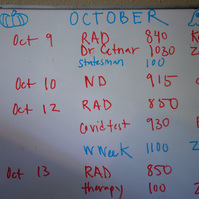 OCTOBER
Oct 9 RAD 840
Dr Cetnar 1030
Statesman 100
Oct 10 ND 915
Oct 12 RAD 850
Covid test 930
W Week 1100
Oct 13 RAD 850
therapy 100